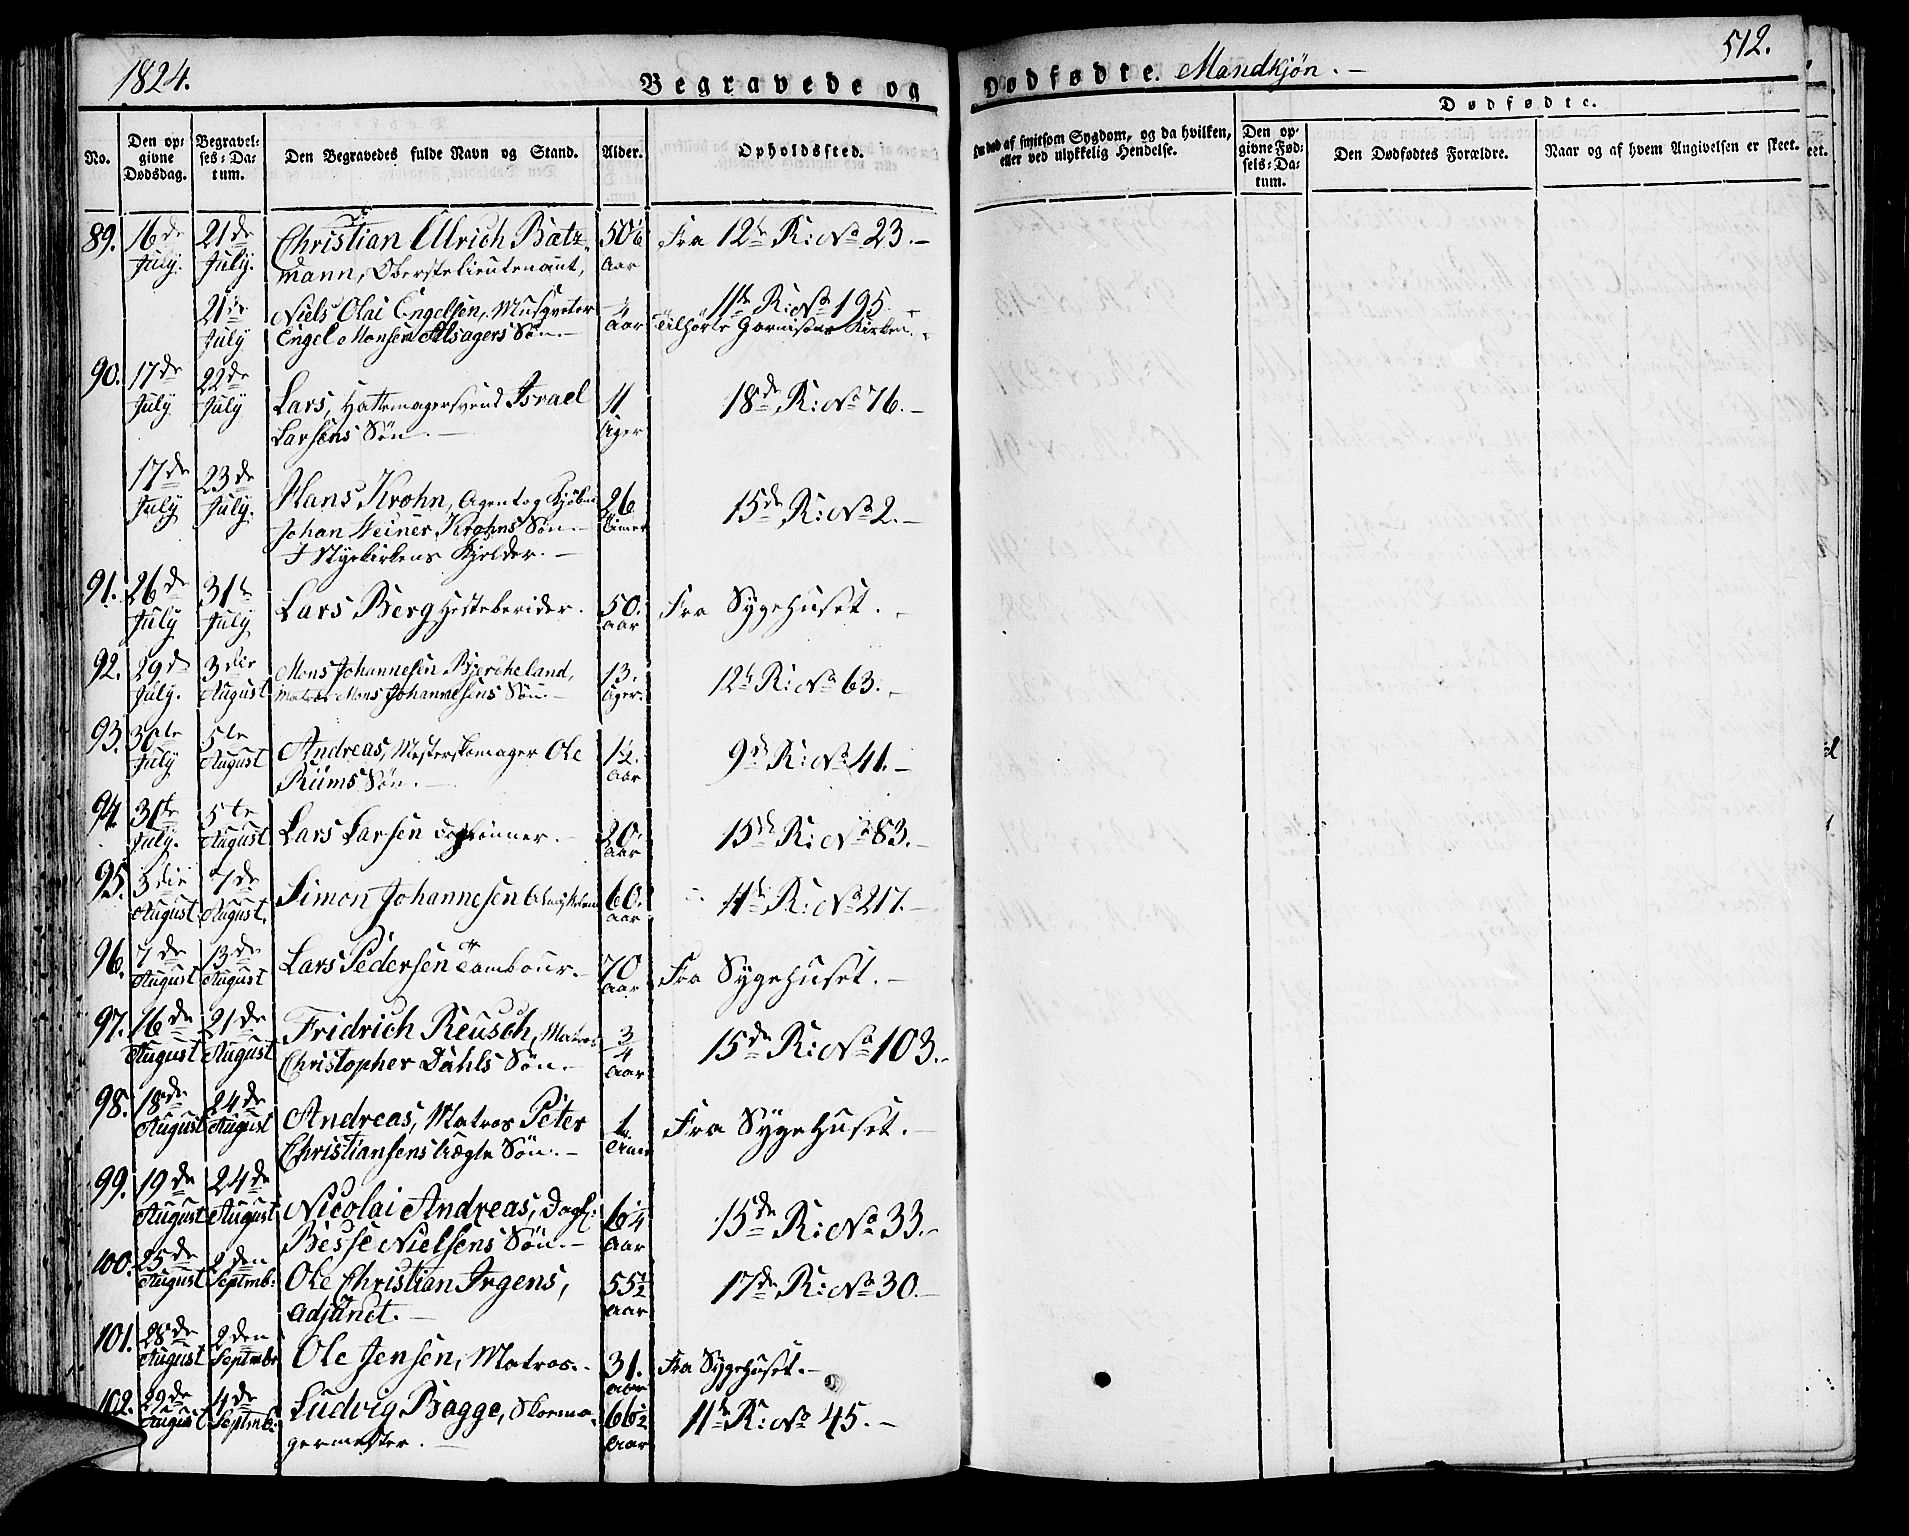 1824.
Begravede og Dødfødte. Mandkjøn.
512.
No.
Den opgivne Dødsdag.
Begravelses-Datum.
Den Begravedes fulde Navn og Stand.
Alder.
Opholdssted.
Om død af smitsom Sygdom, og da hvilken, eller ved ulykkelig Hendelse.
Dødfødte.
Den opgivne Fødsels-Datum.
Den Dødfødtes Forældre.
Naar og af hvem Angivelsen er skeet.
89. 16de 21de Christian Ullrich Batz- 50 Fra 12te R: No 23.
July. July. mann, Oberstelieutenant, Aar
21de Niels Olai Engelsen, Musqveter 11te R: No 195.
July Engel Monsen Alsagers Søn. Aar Tilhørte Garnisons Kirken.
90. 17de 22de Lars, Hattemagersvend Israel 11 18de R: No 76.
July July Larsens Søn. Uger
17de 23de Hans Krohn, Agent og Kjøbm 26 15de R: No 2.
July July. Johan Weiner Krohns Søn. Timer
I Nyekirkens Kjelder.
91. 26de 31te Lars Berg Hesteberider. 50. Fra Sygehuset.
July July Aar
92. 29d 3die Mons Johannesen Bjercheland, 13. 12te R: No 63.
July. August Matros Mons Johannesens Søn. Uger.
93. 30te 5te Andreas, Mesterskomager Ole 1½. 9de R: No 41.
July August Rüms Søn. Aar
94. 31te 5te Lars Larsen Dagl 20 15de R: No 83.
July. August Aar
95. 3die 7de Simon Johannesen 60. 11te R: No 217.
August August. Aar
96. 7de 13de Lars Pedersen Tambour. 70 Fra Sygehuset.
August August Aar
97. 16de 21de Fridrich Reusch, Matros 3/4 15de R: No 103.
August August Christopher Dahls Søn. Aar
98. 18de 24de Andreas, Matros Peter 1 Fra Sygehuset.
August August Christiansens Uægte Søn. Time
99. 19de 24de Nicolai Andreas, Dagl: 6¼ 15de R: No 33.
August August Besse Nielsens Søn. Aar
100. 25de 2den Ole Christian Irgens, 55½ 17de R: No 30.
August Septmb: Adjunct. Aar
101. 28de 2den Ole Jensen, Matros. 31. Fra Sygehuset.
August Septmbr Aar
102. 29de 4de Ludvig Bagge, Skoma- 66½ 11te R: No 45.
August Septmb: germester. Aar